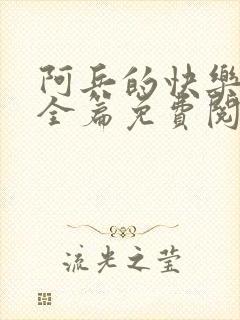 阿兵的快樂
全篇免費閱
流光之莹